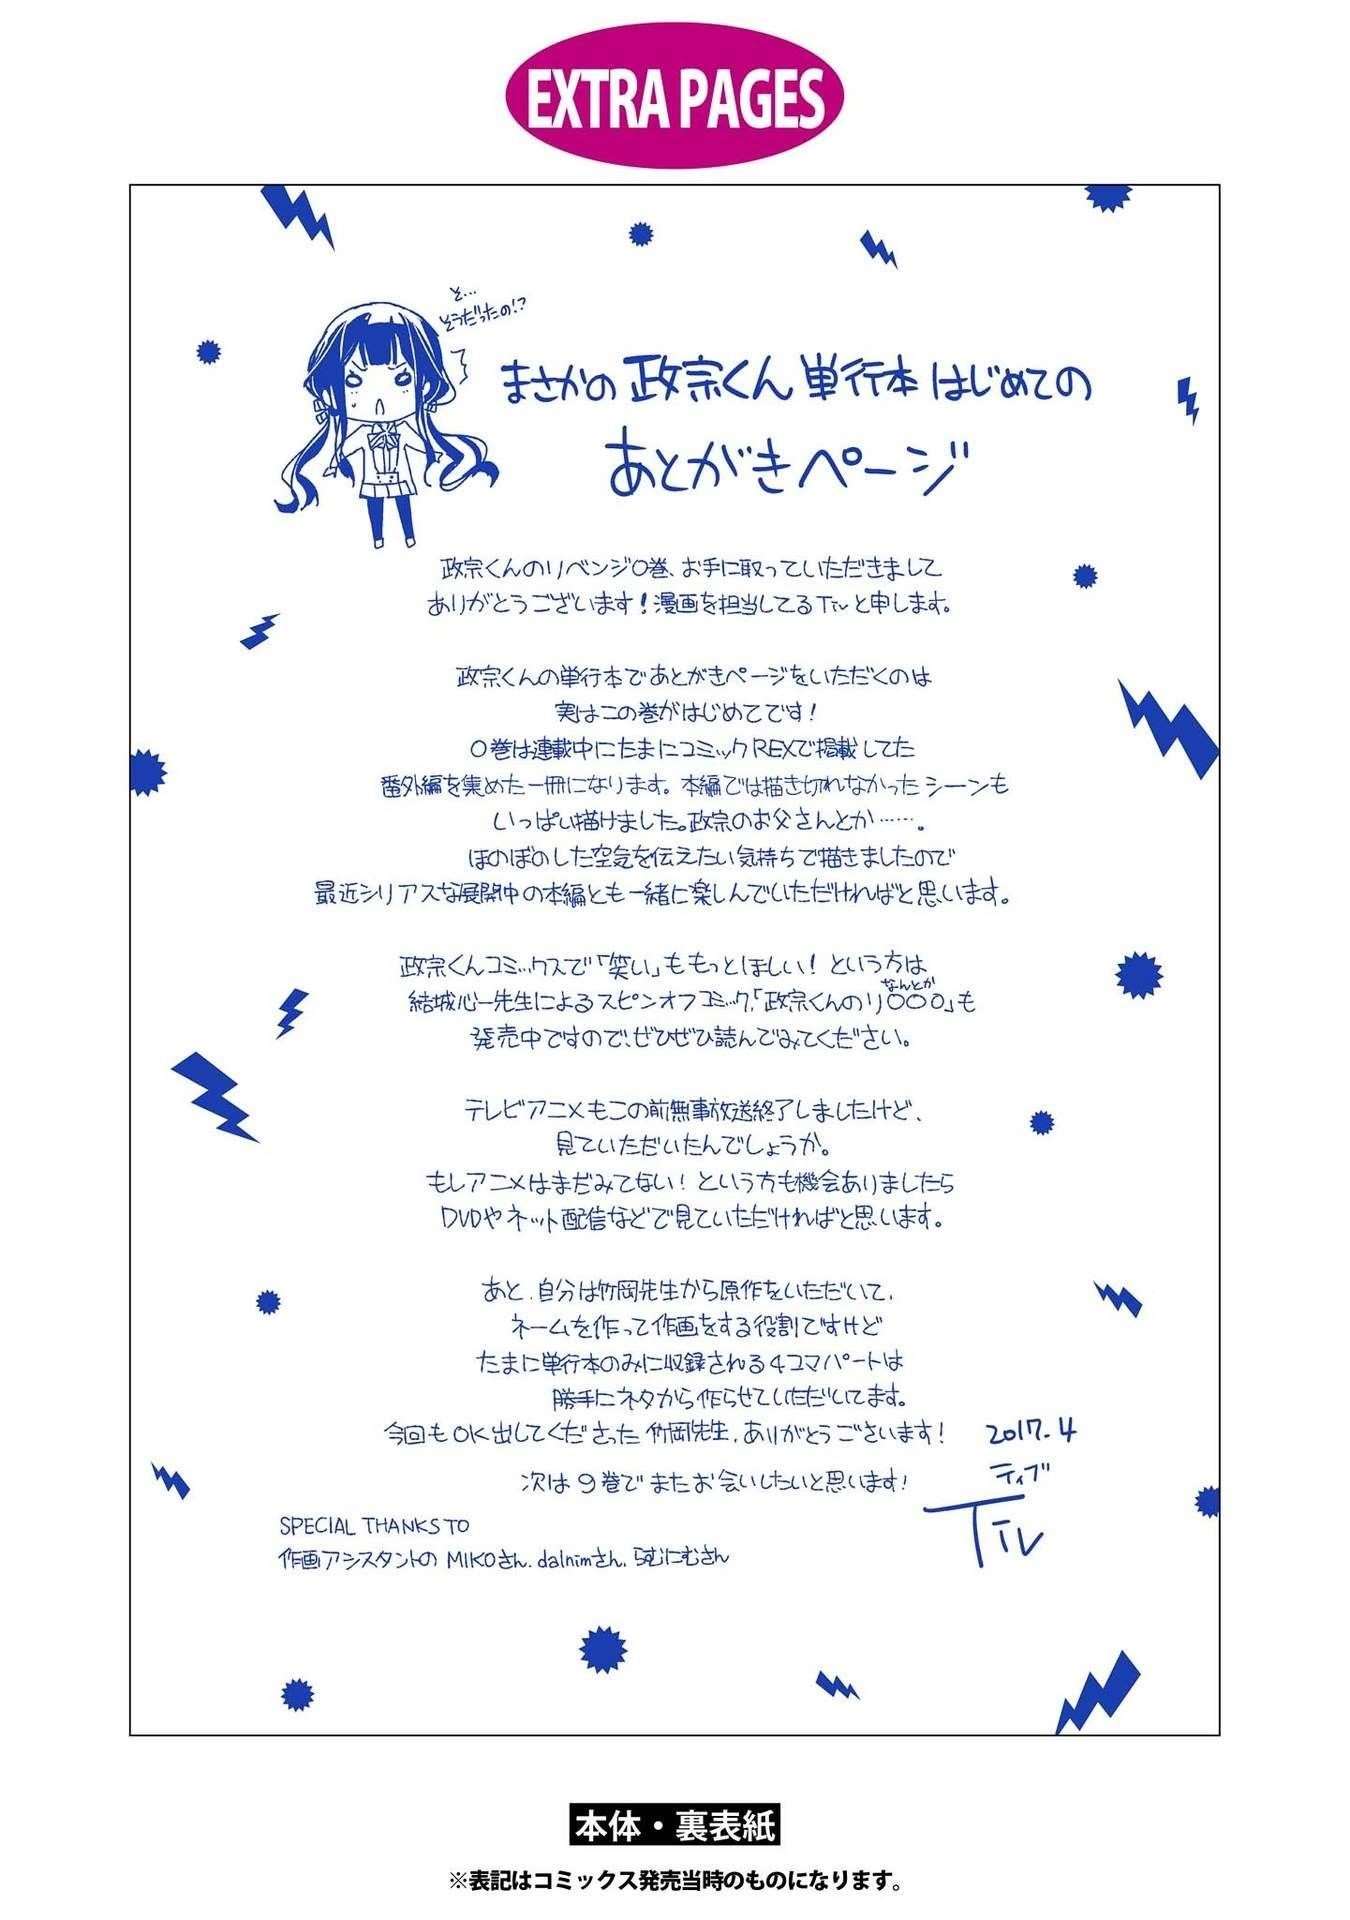 EXTRA PAGES
そ…
そうだったの!?
まさかの政宗くん単行本はじめての
あとがきページ
政宗くんのリベンジ0巻、お手に取っていただきまして
ありがとうございます!漫画を担当してるTivと申します。
政宗くんの単行本であとがきページをいただくのは
実はこの巻がはじめてです!
0巻は連載中にたまにコミックREXで掲載してた
番外編を集めた一冊になります。本編では描き切れなかったシーンも
いっぱい描けました。政宗のお父さんとか……。
ほのぼのした空気を伝えたい気持ちで描きましたので
最近シリアスな展開中の本編とも一緒に楽しんでいただければと思います。
政宗くんコミックスで「笑い」ももっとほしい!という方は
なんとか
結城心一先生によるスピンオフコミック、「政宗くんのリ○○○」も
発売中ですので、ぜひぜひ読んでみてください。
テレビアニメもこの前無事放送終了しましたけど、
見ていただいたんでしょうか。
もしアニメはまだみてない!という方も機会ありましたら
DVDやネット配信などで見ていただければと思います。
あと、自分は竹岡先生から原作をいただいて、
ネームを作って作画をする役割ですけど
たまに単行本のみに収録される4コマパートは
勝手にネタから作らせていただいてます。
今回もOK出してくださった竹岡先生、ありがとうございます!
次は9巻でまたお会いしたいと思います!
2017.4
ティブ
Tiv
SPECIAL THANKS TO
作画アシスタントのMIKOさん、dalnimさん、らむにむさん
本体・裏表紙
※表記はコミックス発売当時のものになります。